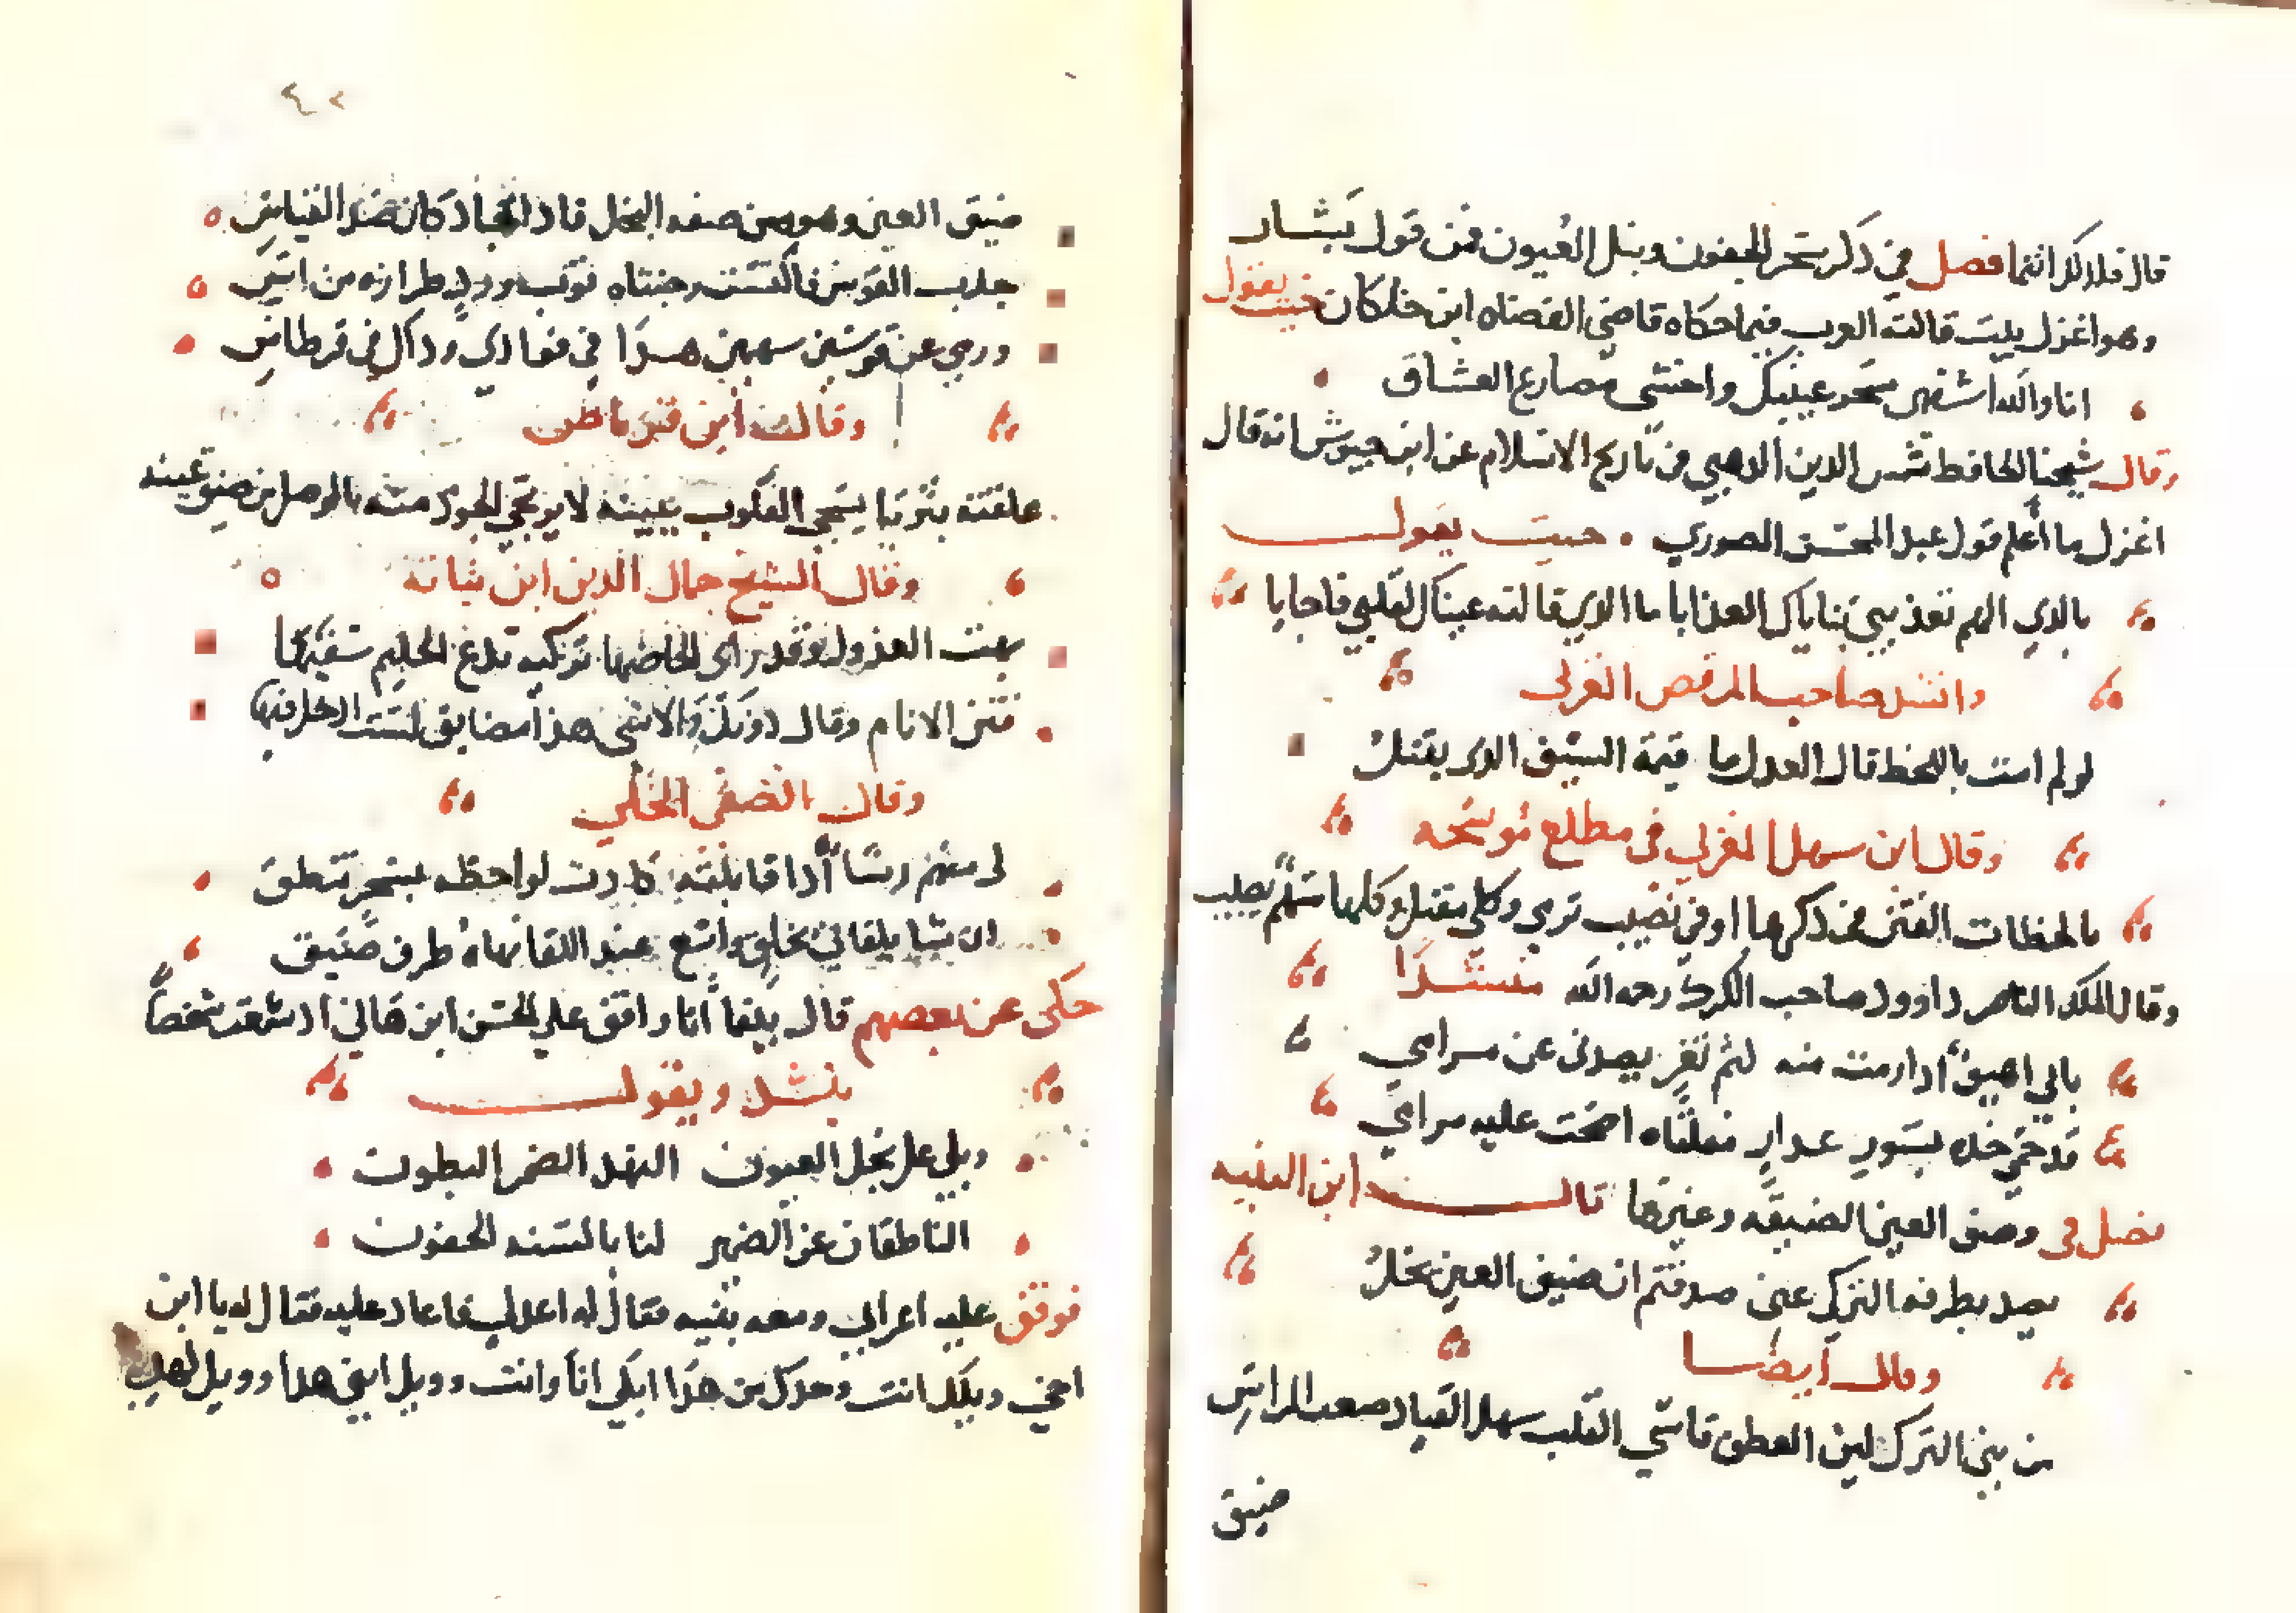 قال فلذلك اثنما فصل في ذكر سحر الجفون ونبل العيون فمن قول بشار
وهو اغزل بيت قالته العرب فيما حكاه قاضي القضاه ابن خلكان حيث يقول
انا والله اشتهي سحر عينيك واخشي مصارع العشاق
وقال شيخنا الحافظ شمس الدين الذهبي في تاريخ الاسلام عن ابن حيوش انه قال
اغزل ما أعلم قول عبد المحسن الصوري حيث يقول
بالذي الهم تعذيبي ثناياك العذابا ما الذي قالته عيناك لقلبي فاجابا
وانشد صاحب المرقص الغزلي
لو لم امت باللحظ قال العدل ما قيمة السيف الذي يقتل
وقال ابن سهل المغربي في مطلع موشحه
يا لحظات الفتن في ذكرها اوفي نصيب ترمي وكلي مقتل وكلها سهم يصيب
وقال الملك الناصر داوود صاحب الكرك رحمه الله منشدا
بابي اهيف اذا رمت منه لثم ثغر يصدني عن مرامي
قد حمى خده بسور عذار مقلتاه اضحت عليه مرامي
فصل في وصف العين الضيقه وغيرها قال ابن النبيه
يصد بطرفه التركي عني صدقتم ان ضيق العين بخل
وقال أيضا
من بني الترك لين العطف قاسي القلب سهل القياد صعب المراس
ضيق
٤٢
ضيق العين وهو من صفه البخل فاذا جاد كان ضد القياس
جذب القوس فاكتست وجنتاه ثوب ورد طرازه من اس
ورمي عن قوسين سهمين هذا في فؤادي وذاك في قرطاس
وقال ابن قرناص
علقته تتريا يسبي القلوب بعينه لا يرتجي الجود منه بالوصل من ضيق عينه
وقال الشيخ جمال الدين ابن نباته
بهت العذول وقد راى الحاظها تركيه تدع الحليم سفيها
فثنى الانام وقال دونك والاسى هذا مضايق لست ادخل فيها
وقال الصفي الحلي
لي منهم رشا أذا قابلته كادت لواحظه بسحر تنطق
ان شا يلقاني بخلق واسع عند اللقا نهاه طرف ضيق
حكى عن بعضهم قال بينما أنا واقف علي الحسن ابن هاني اذ سمعت شخصا
ينشد ويقول
ويلي علي نجل العيون النهد الضمر البطون
الناطقات عن الضمير لنا بالسنه الجفون
فوقف عليه اعرابي ومعه بنيه فقال له اعد لي فاعاد عليه فقال له يا ابن
اخي ويلك انت وحدك من هذا ابكي انا وانت وويل ابني هذا وويل